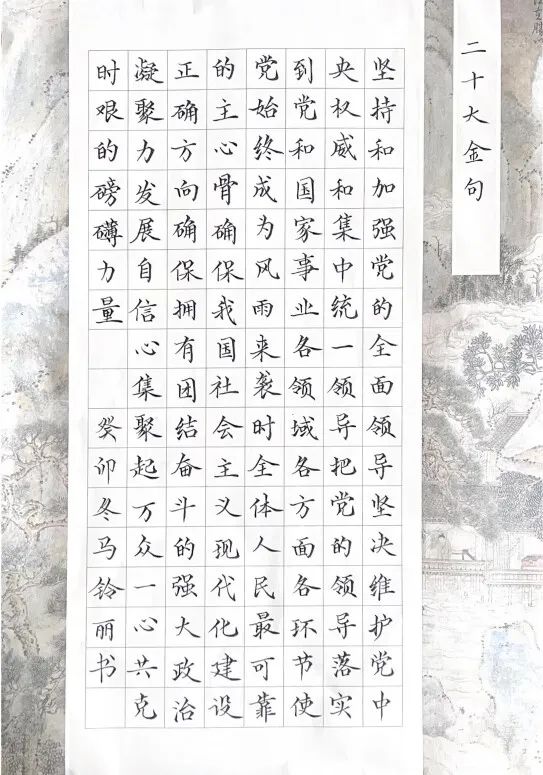 二十大金句
坚持和加强党的全面领导坚决维护党中
央权威和集中统一领导把党的领导落实
到党和国家事业各领域各方面各环节使
党始终成为风雨来袭时全体人民最可靠
的主心骨确保我国社会主义现代化建设
正确方向确保拥有团结奋斗的强大政治
凝聚力发展自信心集聚起万众一心共克
时艰的磅礴力量 癸卯冬马铃丽书